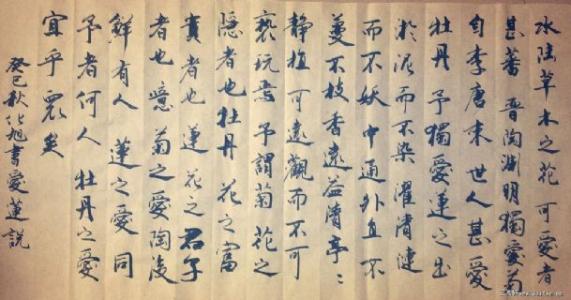 水陸草木之花可愛者
甚蕃晋陶渊明獨愛菊
自李唐来世人甚愛
牡丹予獨愛蓮之出
淤泥而不染濯清漣
而不妖中通外直不
蔓不枝香遠益清亭〻
静植可遠觀而不可
褻玩焉予謂菊花之
隱者也牡丹花之富
貴者也蓮花之君子
者也噫菊之愛陶後
鮮有人蓮之愛同
予者何人牡丹之愛
宜乎眾矣
癸巳秋旭書愛蓮説